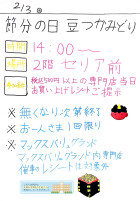 2/3 ㊐
節分の日 豆つかみどり
時間 14:00~
場所 2階 セリア前
税込500円以上の専門店当日
お買い上げレシートご提示
※ 無くなり次第終了
※ お一人さま1回限り
※ マックスバリュ グランド
マックスバリュグランド内専門店
催事のレシートは対象外